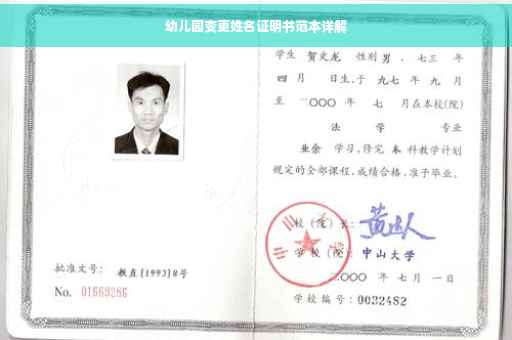 幼儿园变更姓名证明书范本详解
学生 贺文龙 性别男 、七三 年
四 月 日生,于 九七 年 九 月
至 二〇〇〇 年 七 月在本校(院)
法 学 专业
业余 学习,修完 本 科教学计划
规定的全部课程,成绩合格,准予毕业。
校 (院) 长:
学 校 (院): 中山大学
二〇〇〇 年 七 月 一 日
批准文号: 教直[1993]8号
No. 01669286
学校编号: 0032482